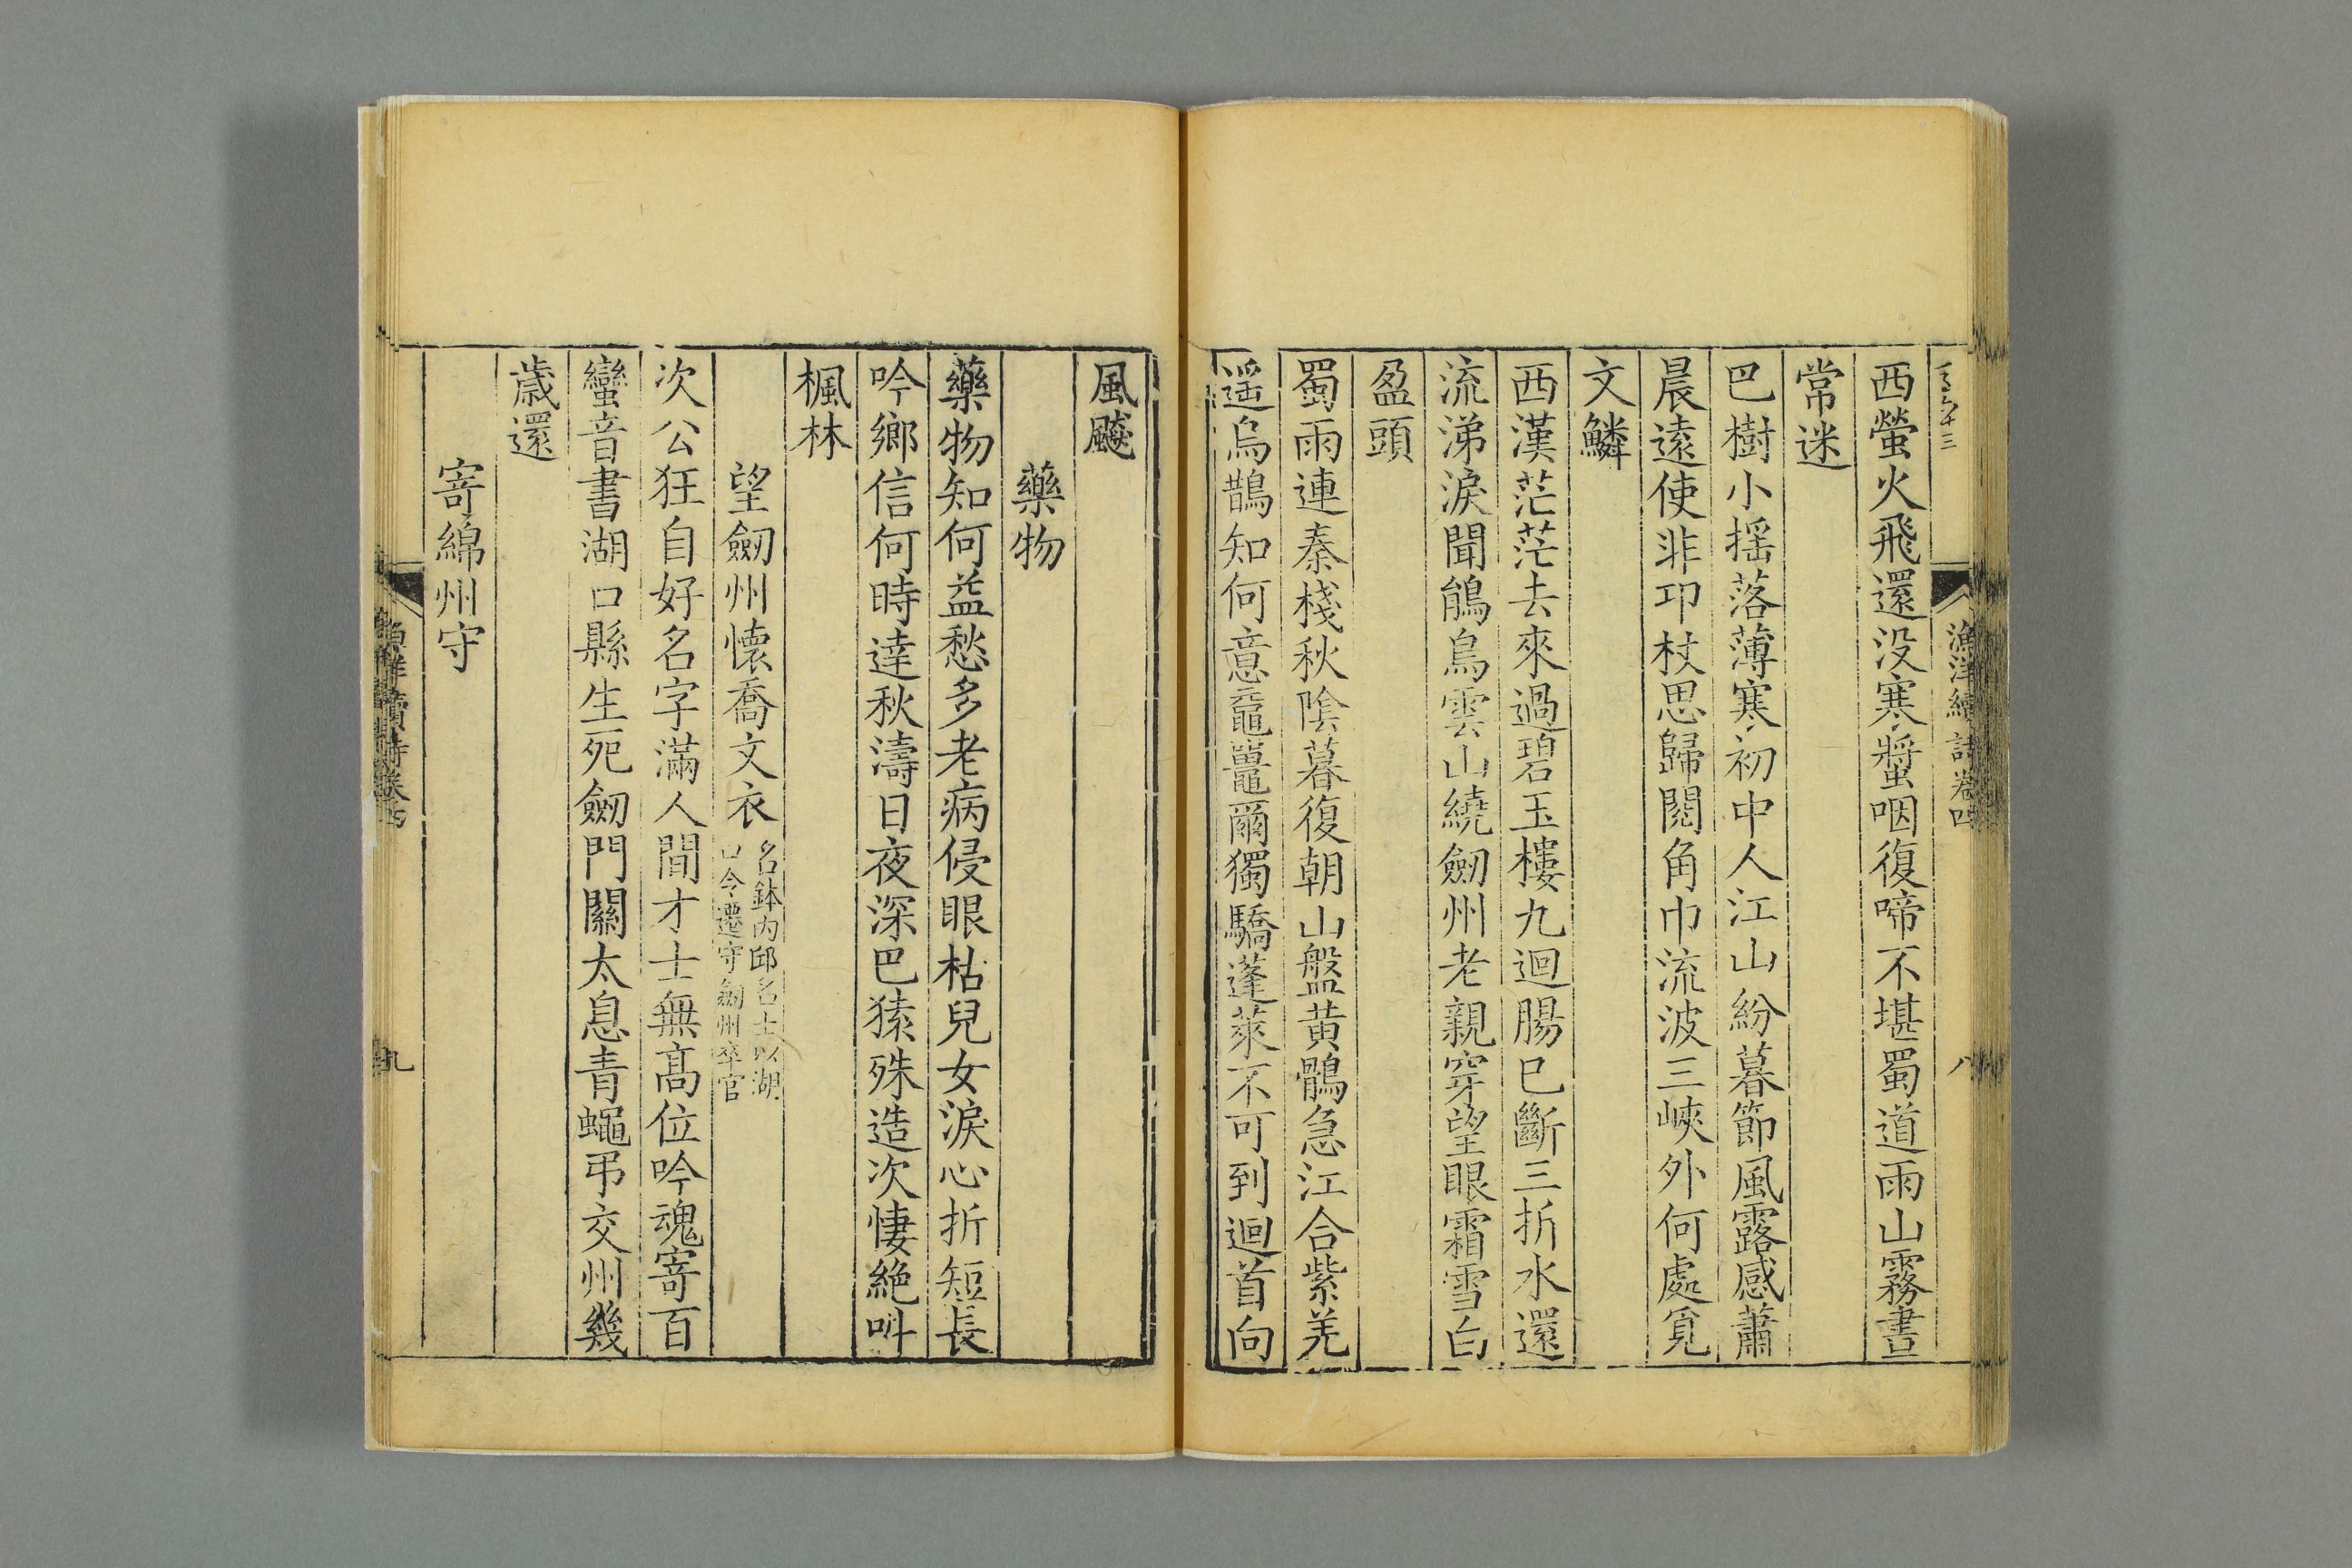 漁洋續詩卷四
八
西螢火飛還没寒螿咽復啼不堪蜀道雨山霧晝
常迷
巴樹小揺落薄寒初中人江山紛暮節風露感蕭
晨遠使非卭杖思歸閱角巾流波三峽外何處覓
文鱗
西漢茫茫去來過碧玉樓九迴腸巳斷三折水還
流涕淚聞鵃鳥雲山繞劒州老親穿望眼霜雪白
盈頭
蜀雨連秦棧秋陰暮復朝山盤黄鶻急江合紫羌
遥烏鵲知何意黿鼉爾獨驕蓬萊不可到迴首向
風飇
藥物
藥物知何益愁多老病侵眼枯兒女淚心折短長
吟鄉信何時達秋濤日夜深巴猿殊造次悽絶呌
楓林
望劒州懷喬文衣名鉢内邱名士以湖
口令遷守劒州卒官
次公狂自好名字滿人間才士無髙位吟魂寄百
蠻音書湖口縣生死劒門關太息青蠅弔交州幾
歳還
寄綿州守
漁洋續詩卷四
九